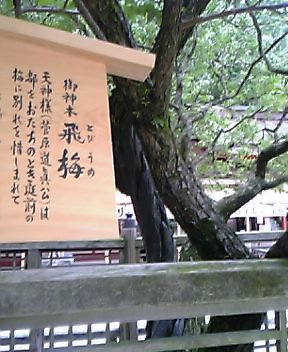 御神木 飛梅
とび うめ
天神様（菅原道真公）は
都をおたちのとき庭前の
梅に別れを惜しまれて